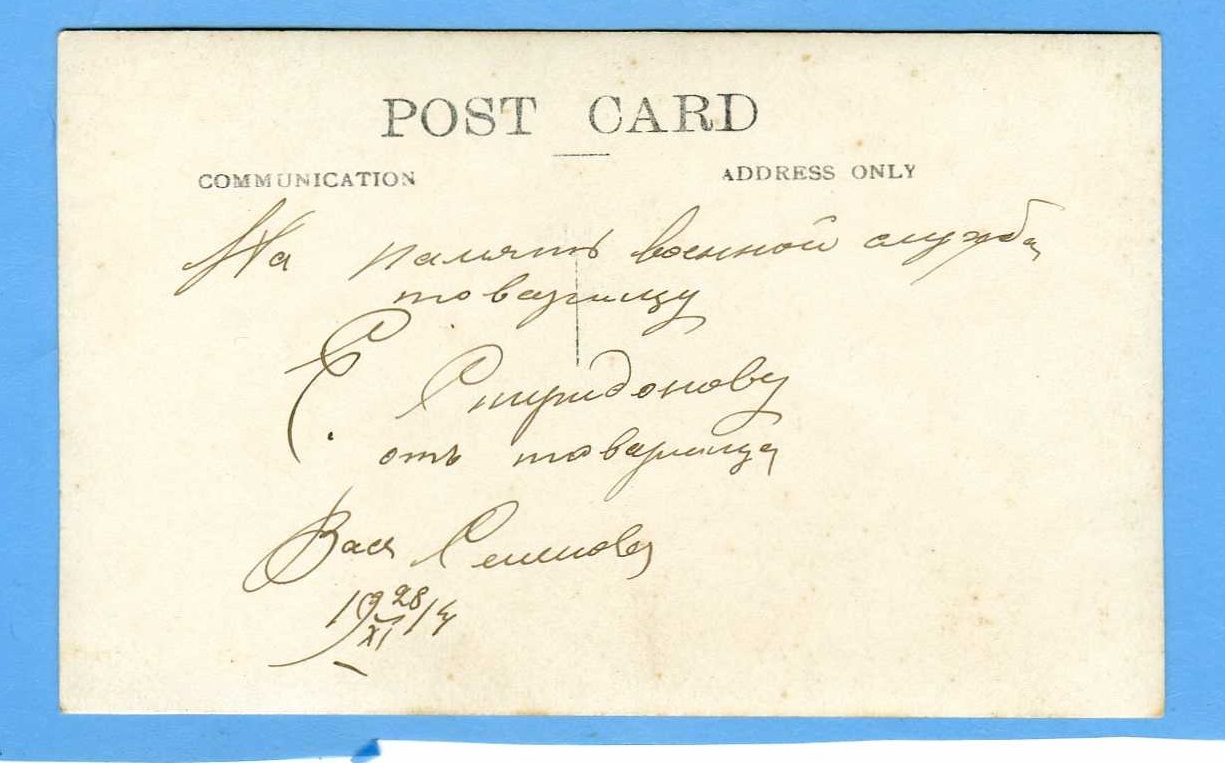 POST CARD
COMMUNICATION ADDRESS ONLY
На память военной службы
товарищу
Е. Спиридонову
отъ товарища
Вася Семенова
19 28/XI 14